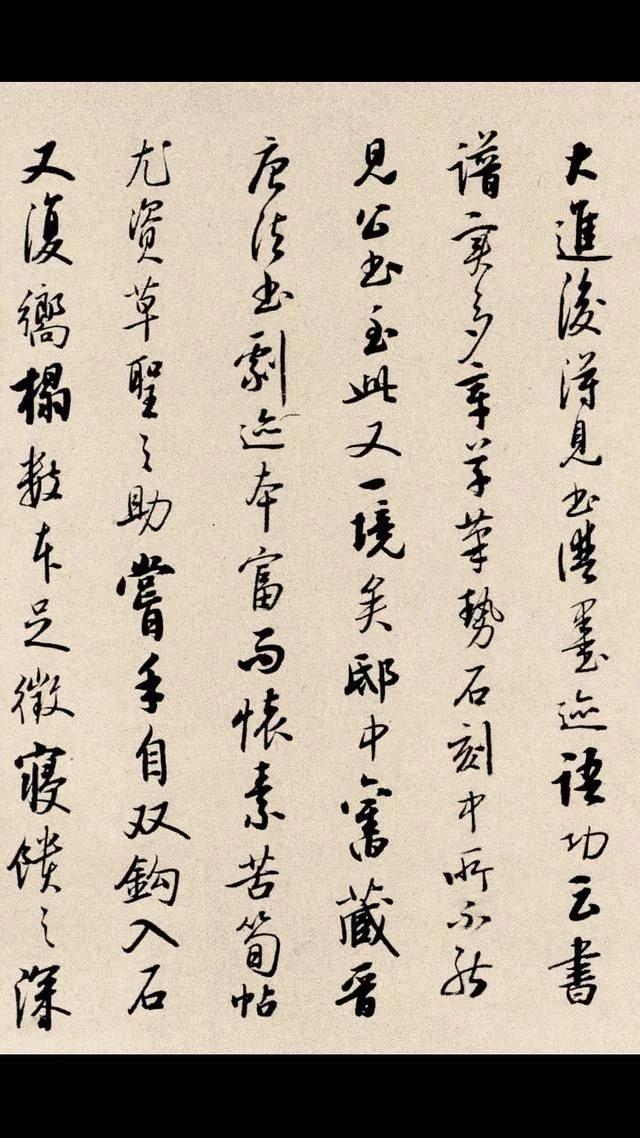 大進後得見書譜墨迹語功云書
譜實多章草筆勢石刻中所不能
見公書至此又一境矣邸中舊藏晉
唐法書劇迹本富而懷素苦筍帖
尤資草聖之助嘗手自双鈎入石
又復嚮榻數本足徵寢饋之深